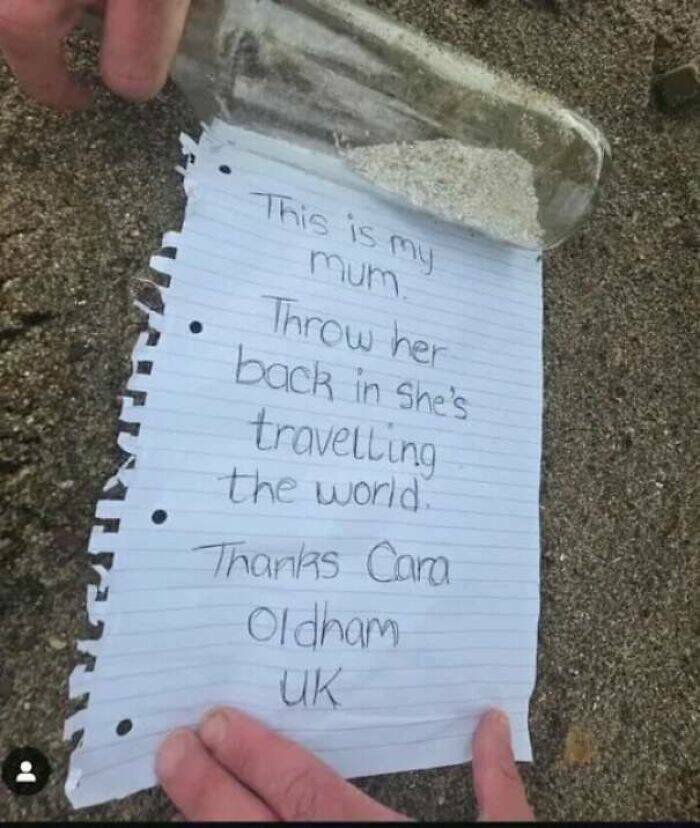 This is my
mum.
Throw her
back in She's
travelling
the world.
Thanks Cara
Oldham
UK